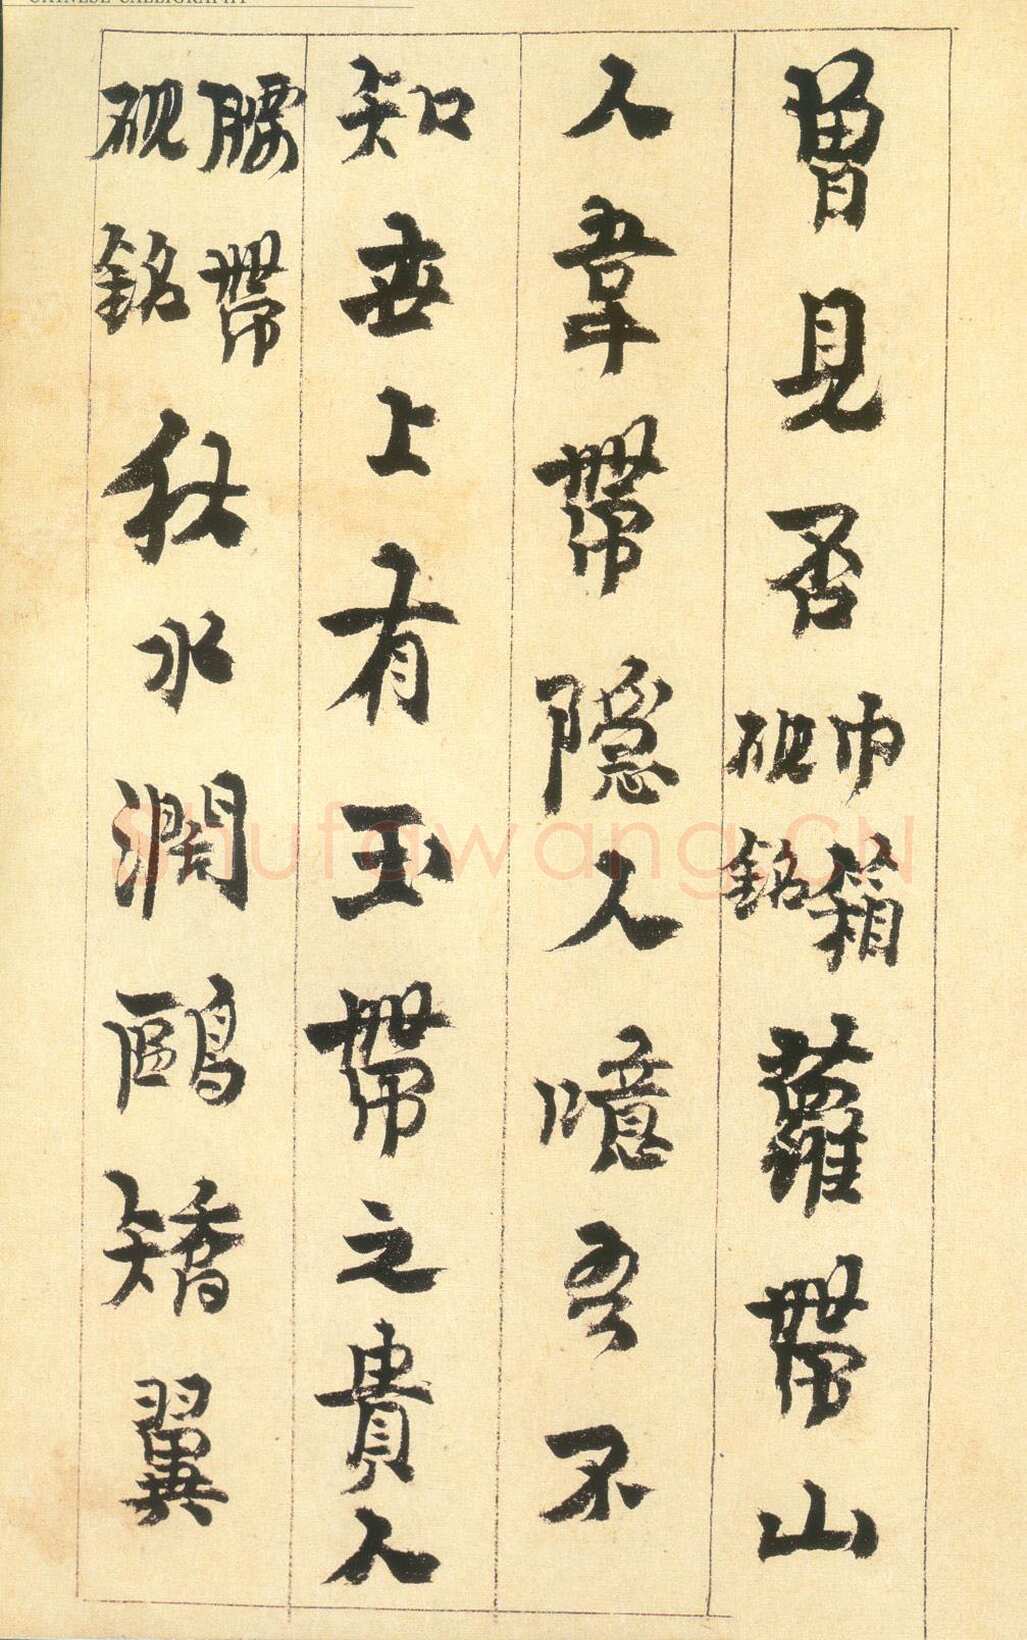 CHINESE CALLIGRAPHY
曾見否巾箱硯銘蘿帶山
人韋帶隱人噫吾不
知世上有玉帶之貴人
腰帶硯銘秋水潤鷗矯翼
Shufawang.CN